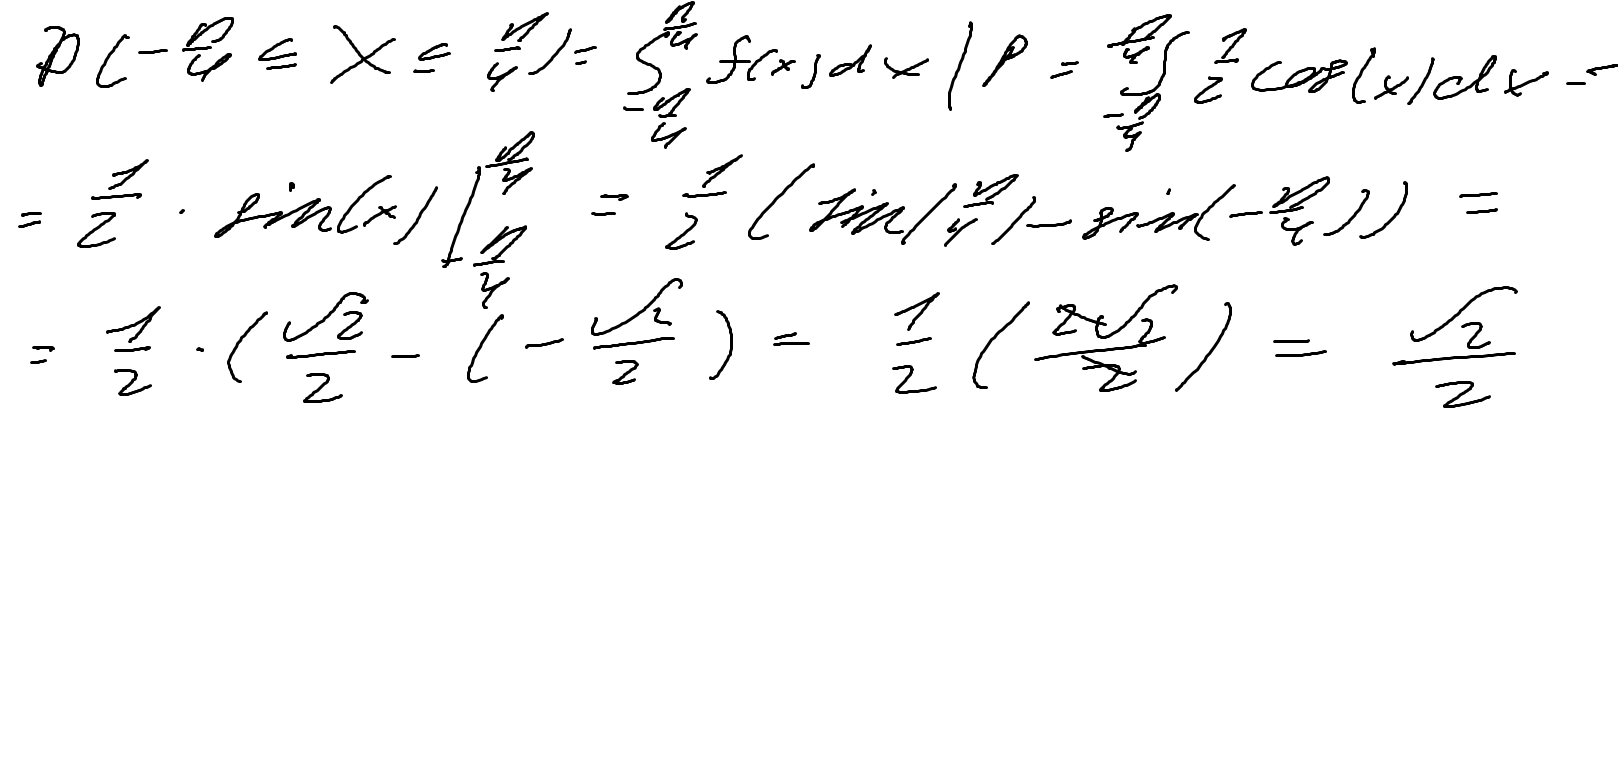 P(-π/4 ≤ X ≤ π/4) = ∫_{-π/4}^{π/4} f(x)dx | P = ∫_{-π/4}^{π/4} 1/2 cos(x)dx =
= 1/2 · sin(x) |_{-π/4}^{π/4} = 1/2 (sin(π/4) - sin(-π/4)) =
= 1/2 · (√2/2 - (-√2/2) = 1/2 (2√2/2) = √2/2